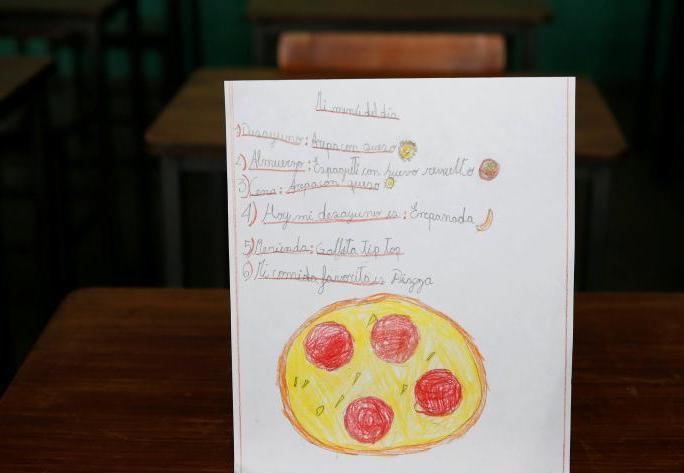 Mi menú del día
1) Desayuno: Arepa con queso
2) Almuerzo: Espaguiti con huevo revuelto
3) Cena: Arepa con queso
4) Hoy mi desayuno es: Empanada
5) Merienda: Gallita tip top
6) Mi comida favorita es Pizza